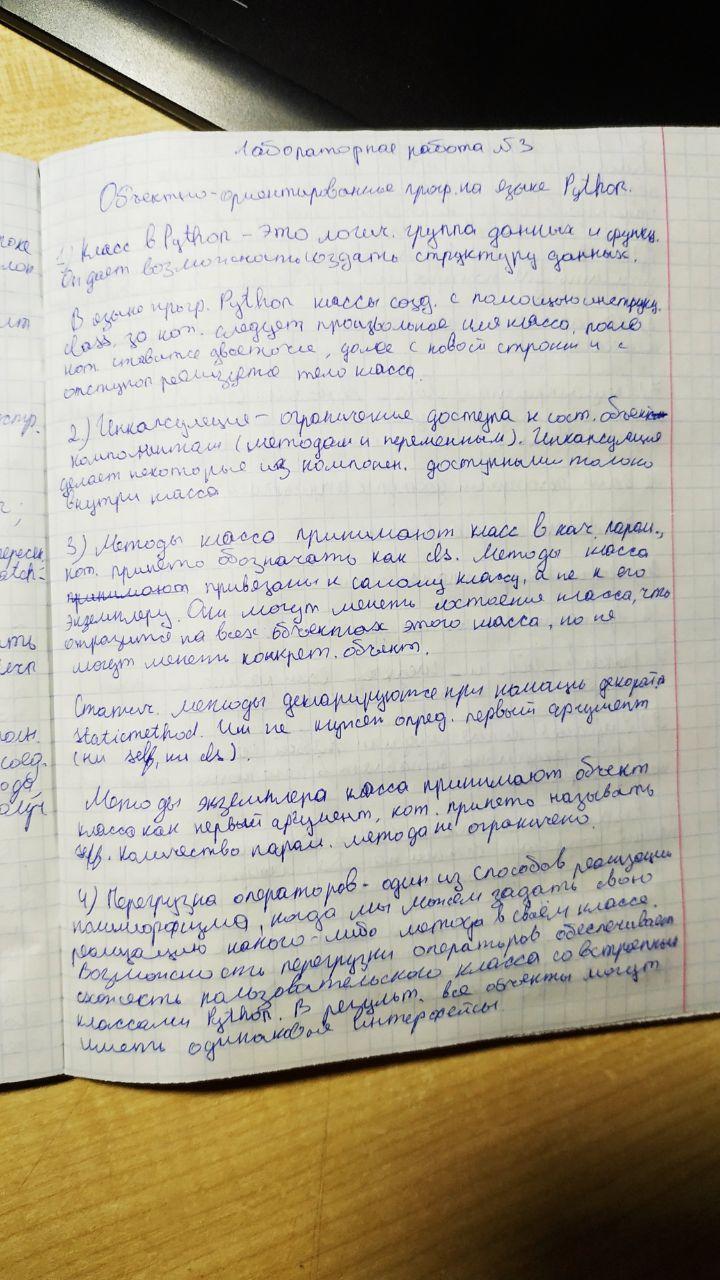 Лабораторная работа №3
Объектно-ориентированное прогр. на языке Python.
1) Класс в Python – это логич. группа данных и функц.
Он дает возможность создать структуру данных.
В языке прогр. Python классы созд. с помощью инструкц.
class, за кот. следует произвольное имя класса, после
кот. ставится двоеточие, далее с новой строки и с
отступом реализуется тело класса.
2.) Инкапсуляция – ограничение доступа к сост. объект
компонентам (методам и переменным). Инкапсуляция
делает некоторые из компонен. доступными только
внутри класса
3) Методы класса принимают класс в кач. парам.,
кот. принято обозначать как cls. Методы класса
принимают привязаны к самому классу, а не к его
экземпляру. Они могут менять состояние класса, что
отразится на всех объектах этого класса, но не
могут менять конкрет. объект.
Статич. методы декларируются при помощи декорат.
staticmethod. Им не нужен опред. первый аргумент
(ни self, ни cls).
Методы экземпляра класса принимают объект
класса как первый аргумент, кот. принято называть
self. Количество парам. метода не ограничено.
4) Перегрузка операторов – один из способов реализации
полиморфизма, когда мы можем задать свою
реализацию какого-либо метода в своём классе.
Возможность перегрузки операторов обеспечивает
схожесть пользовательского класса со встроенными
классами Python. В результ. все объекты могут
иметь одинаковые интерфейсы
токе
лт
стр.
ересы
atch=
ить
полн.
соед.
ода